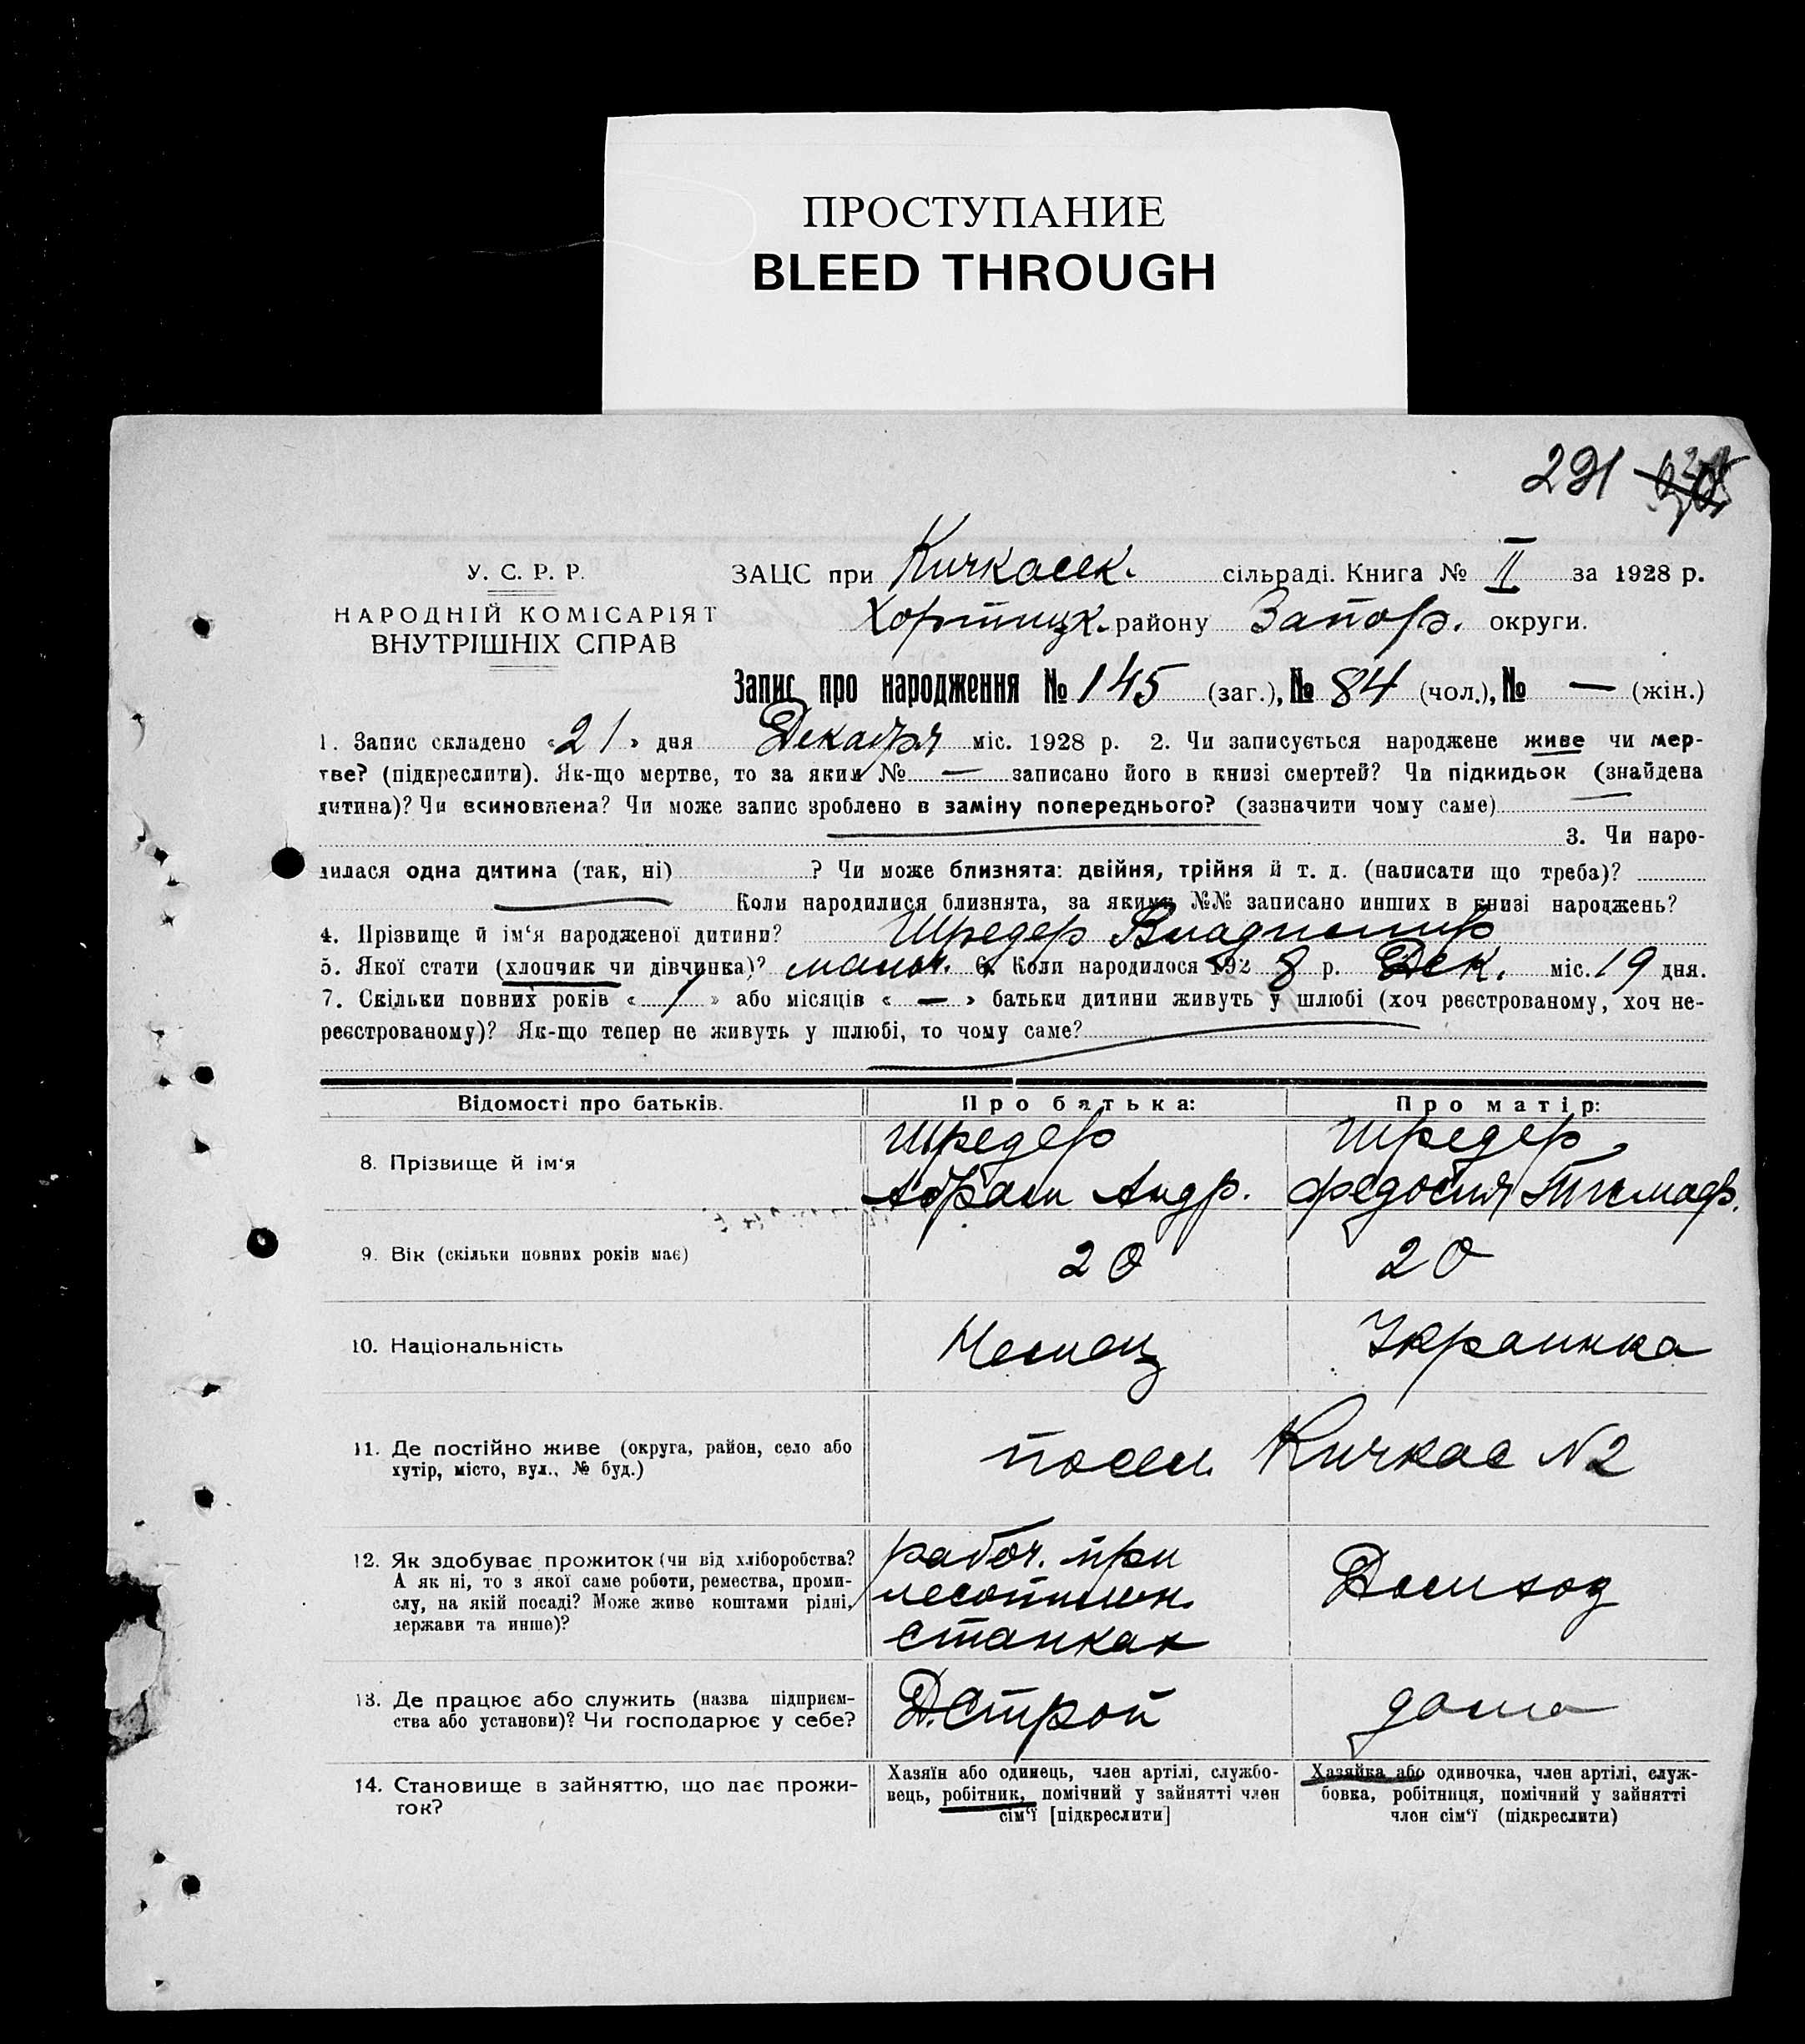 ПРОСТУПАНИЕ
BLEED THROUGH
291
У. С. Р. Р.
НАРОДНІЙ КОМІСАРІЯТ
ВНУТРІШНІХ СПРАВ
ЗАЦС при Кичкасск. сільраді. Книга № II за 1928 р.
Хортицк. району Запор. округи.
Запис про народження № 145 (заг.), № 84 (чол.), № — (жін.)
1. Запис складено «21» дня Декабря міс. 1928 р. 2. Чи записується народжене живе чи мер-
тве? (підкреслити). Як-що мертве, то за яким № — записано його в книзі смертей? Чи підкидьок (знайдена
дитина)? Чи всиновлена? Чи може запис зроблено в заміну попереднього? (зазначити чому саме)
3. Чи наро-
дилася одна дитина (так, ні) ? Чи може близнята: двійня, трійня й т. д. (написати що треба)?
Коли народилися близнята, за якими №№ записано инших в книзі народжень?
4. Прізвище й ім‘я народженої дитини? Шредер Владимир
5. Якої стати (хлопчик чи дівчинка)? мальч. 6. Коли народилося 1928 р. Дек. міс. 19 дня.
7. Скільки повних років « 1 » або місяців « — » батьки дитини живуть у шлюбі (хоч реєстрованому, хоч не-
реєстрованому)? Як-що тепер не живуть у шлюбі, то чому саме?
Відомості про батьків. Про батька: Про матір:
8. Прізвище й ім‘я Шредер Абрам Андр. Шредер Федосия Тимоф.
9. Вік (скільки повних років має) 20 20
10. Національність Немец Украинка
11. Де постійно живе (округа, район, село або
хутір, місто, вул., № буд.) посел. Кичкас N2
12. Як здобуває прожиток (чи від хліборобства?
А як ні, то з якої саме роботи, ремества, проми-
слу, на якій посаді? Може живе коштами рідні,
держави та инше)?
рабоч. при
лесопильн.
станках
Домхоз
13. Де працює або служить (назва підприєм-
ства або установи)? Чи господарює у себе? Д.Строй дома
14. Становище в зайняттю, що дає прожи-
ток?
Хазяїн або одинець, член артілі, службо-
вець, робітник, помічний у зайнятті член
сім‘ї [підкреслити]
Хазяйка або одиночка, член артілі, служ-
бовка, робітниця, помічний у зайнятті
член сім‘ї (підкреслити)